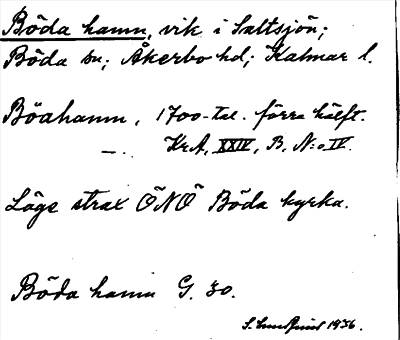 Böda hamn, vik i Saltsjön;
Böda sn; Åkerbo hd; Kalmar l.
Böahamn, 1700-tal. förra hälft.
—. KrA, XXIV, B. N:o IV.
Låge strax ÖNÖ Böda kyrka.
Böda hamn G. 30.
S. 1936.